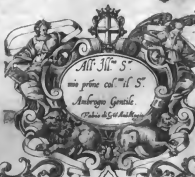 All' Ill.re S.r
mio prône col.mo il S.r
Ambrogio Gentile.